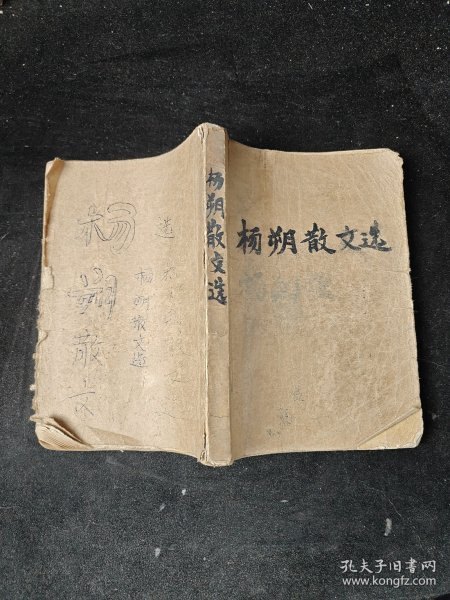 杨朔散文选
杨朔散文选
杨朔散
选
杨朔散文选
孔夫子旧书网
www.kongfz.com